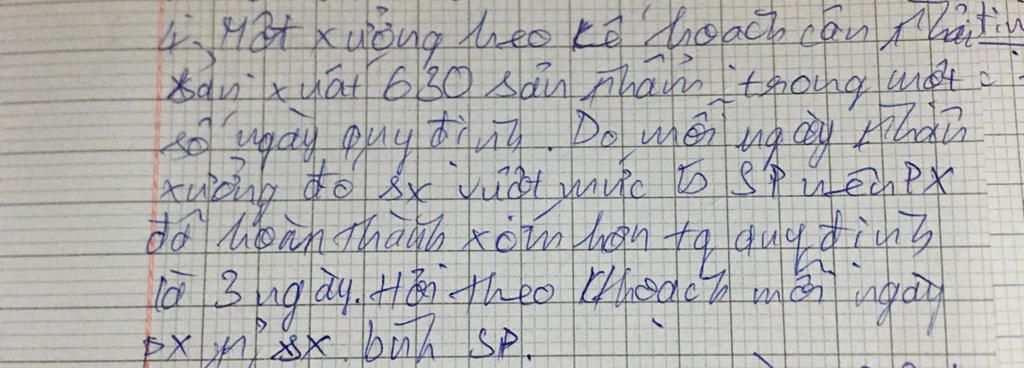 4, Một xưởng theo kế hoạch cần phải
sản xuất 630 sản phẩm trong một
số ngày quy định. Do mỗi ngày phân
xưởng đó sx vượt mức 5 SP nên PX
đã hoàn thành xớm hơn tg quy định
là 3 ngày. Hỏi theo K/hoạch mỗi ngày
px sx SP.